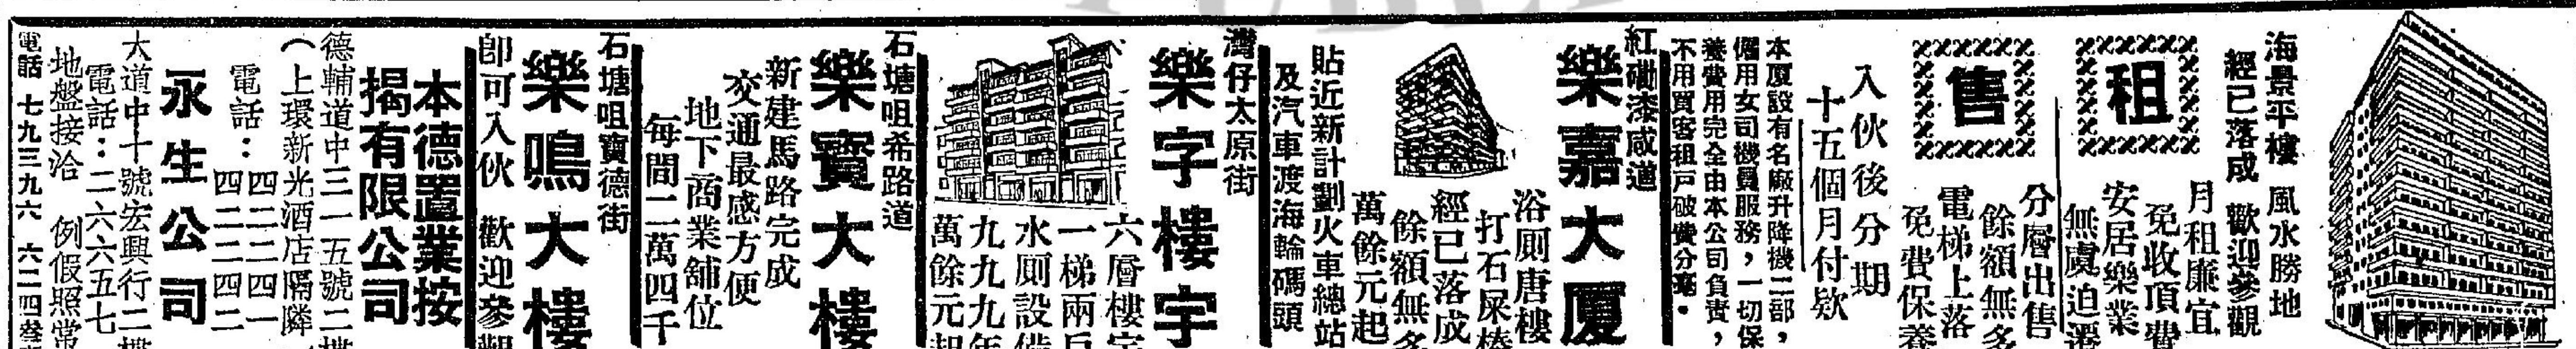 海景平樓 風水勝地
經已落成 歡迎參觀
租
月租廉宜
免收項費
安居樂業
無虞迫遷
售
分層出售
餘額無多
電梯上落
免費保養
入伙後分期
十五個月付欵
本厦設有名廠升降機二部，
僱用女司機員服務，一切保
養費用完全由本公司負責，
不用買客租戶破費分毫。
紅磡漆咸道
樂嘉大厦
浴厕唐樓
打石屎樁
經已落成
餘額無多
萬餘元起
貼近新計劃火車總站
及汽車渡海輪碼頭
灣仔太原街
樂字樓宇
六層樓宇
一梯兩戶
水厠設備
九九九年
萬餘元起
石塘咀希路道
樂寶大樓
新建馬路完成
交通最感方便
地下商業舖位
每間二萬四千
石塘咀寶德街
樂鳴大樓
即可入伙 歡迎參觀
本德置業按
揭有限公司
德輔道中三一五號二樓
（上環新光酒店隔隣
電話：四二二四一
四二二四二
永生公司
大道中十號宏興行二樓
電話：二六六五七
地盤接洽 例假照常
電話 七九三九六 六二四叁